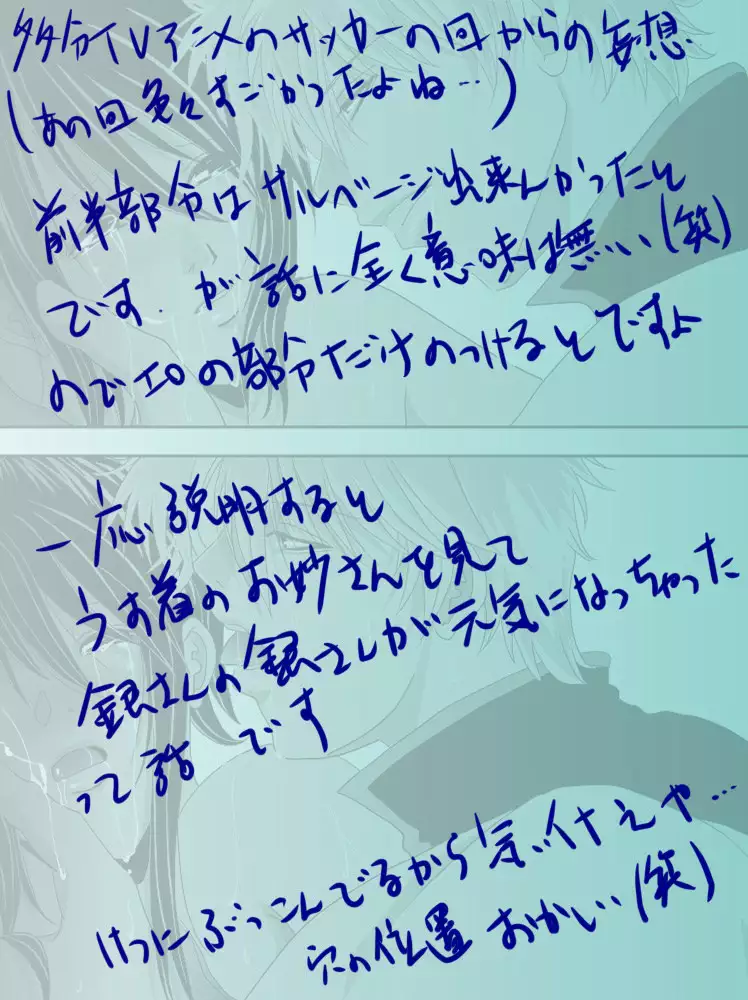 多分TVアニメのサッカーの回からの妄想
(あの回色々すごかったよね…)
前半部分はサルベージ出来んかったと
です.が話に全く意味は無い(笑)
のでエロの部分だけのっけるとですよ
一応説明すると
うす着のお妙さんを見て
銀さんの銀さんが元気になっちゃった
って話です
けつにぶっこんでるから気い付けえや…
穴の位置おかしい(笑)